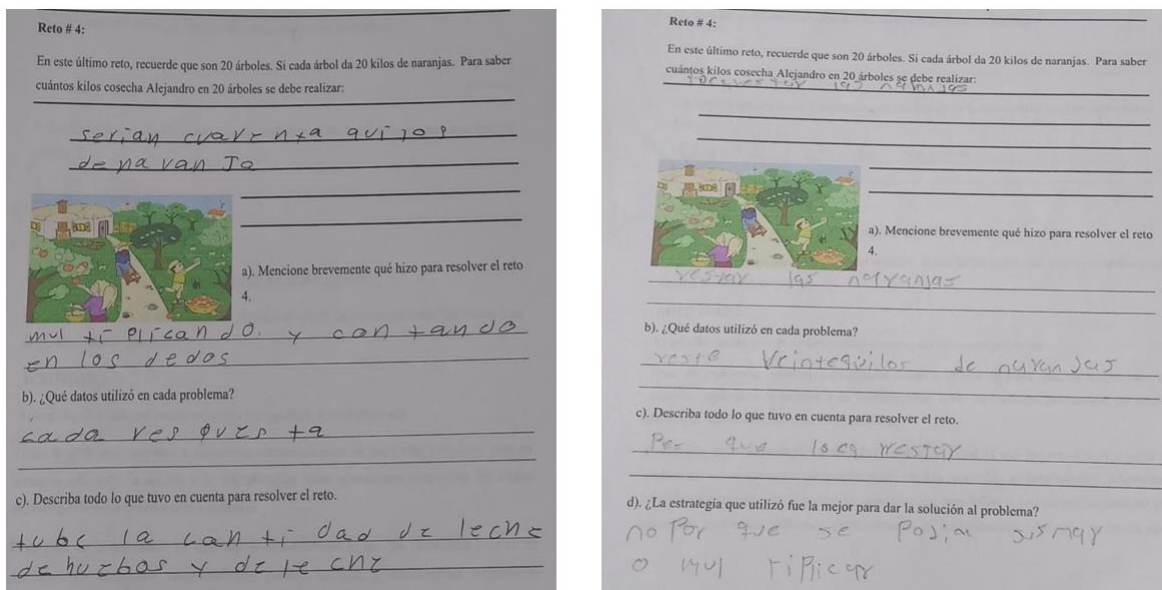 Reto # 4:
En este último reto, recuerde que son 20 árboles. Si cada árbol da 20 kilos de naranjas. Para saber
cuántos kilos cosecha Alejandro en 20 árboles se debe realizar:
serian cuarenta quilos
de naranJa
a). Mencione brevemente qué hizo para resolver el reto
4.
multiplicando. y contando
en los dedos
b). ¿Qué datos utilizó en cada problema?
cada respuesta
c). Describa todo lo que tuvo en cuenta para resolver el reto.
tube la cantidad de leche
de huebos y de leche
Reto # 4:
En este último reto, recuerde que son 20 árboles. Si cada árbol da 20 kilos de naranjas. Para saber
cuántos kilos cosecha Alejandro en 20 árboles se debe realizar:
las
a). Mencione brevemente qué hizo para resolver el reto
4.
restar las naranjas
b). ¿Qué datos utilizó en cada problema?
reste Veintequilos de naranjas
c). Describa todo lo que tuvo en cuenta para resolver el reto.
que restar
d). ¿La estrategia que utilizó fue la mejor para dar la solución al problema?
no Por que se
o